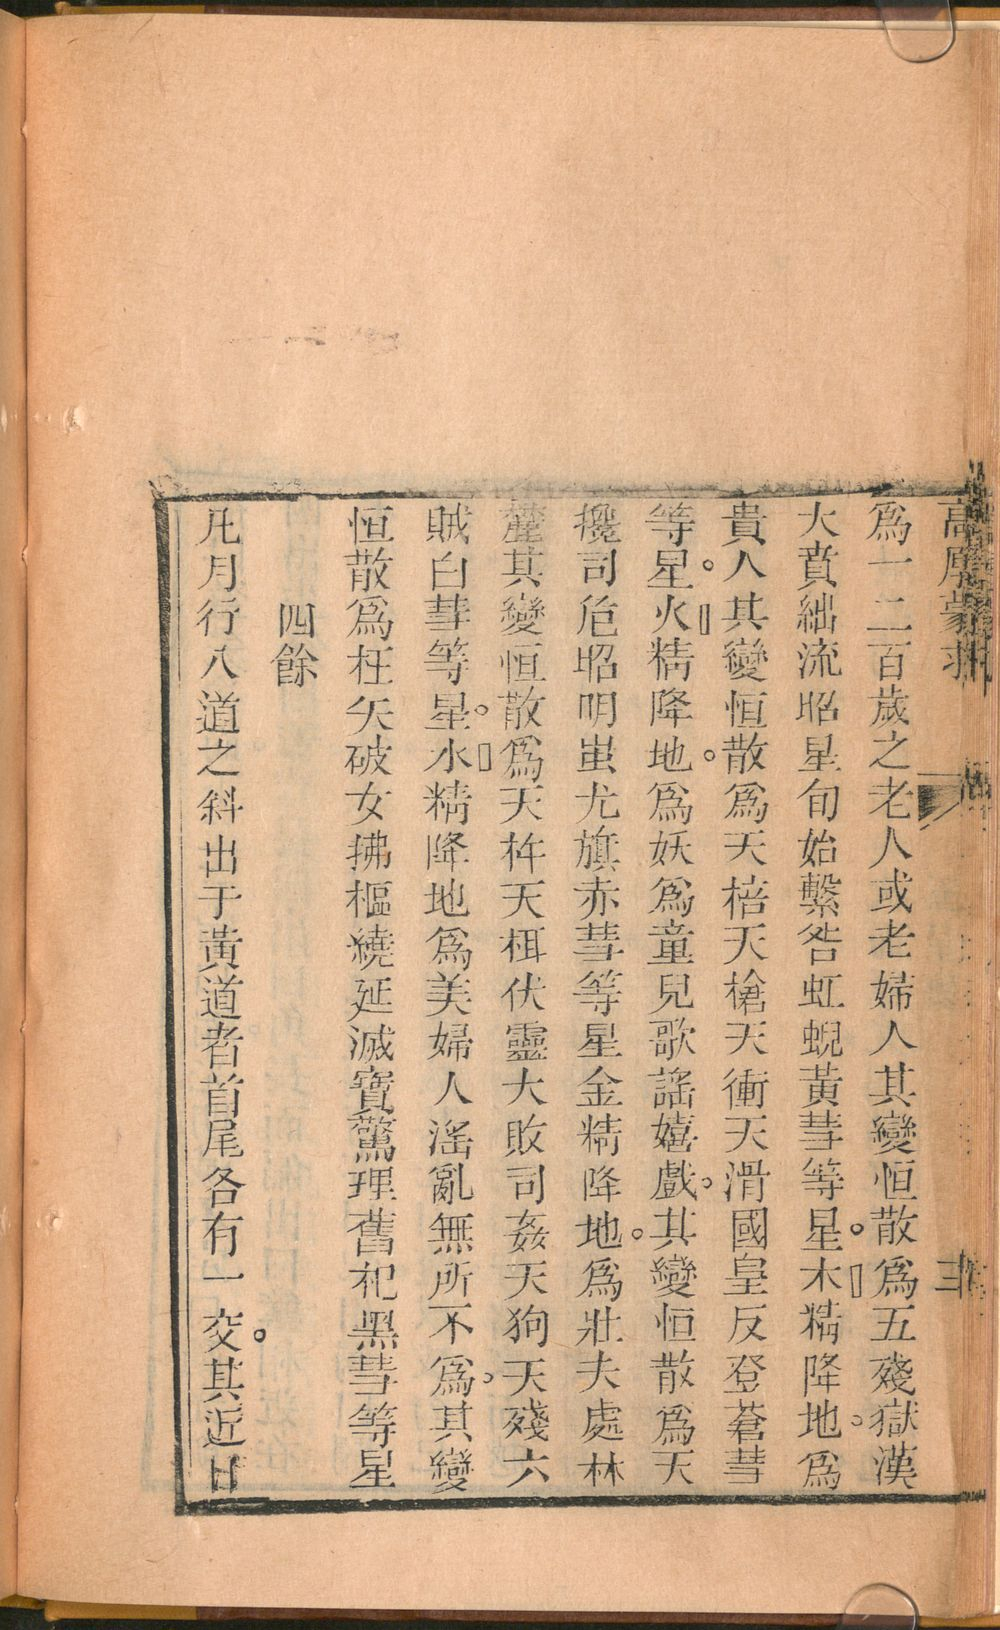 高厚蒙求
三
為一二百歲之老人或老婦人其變恒散為五殘獄漢
大賁絀流昭星旬始繫咎虹蜺黃彗等星。木精降地。為
貴人其變恒散為天棓天槍天衝天滑國皇反登蒼彗
等星。火精降地。為妖為童兒歌謠嬉戲。其變恒散為天
攙司危昭明蚩尤旗赤彗等星金精降地。為壯夫處林
麓其變恒散為天杵天枉伏靈大敗司姦天狗天殘六
賊白彗等星。水精降地為美婦人滛亂無所不為。其變
恒散為枉矢破女拂樞繞延滅寶驚理舊祀黑彗等星
四餘
凡月行八道之斜出于黃道者首尾各有一交。其近日